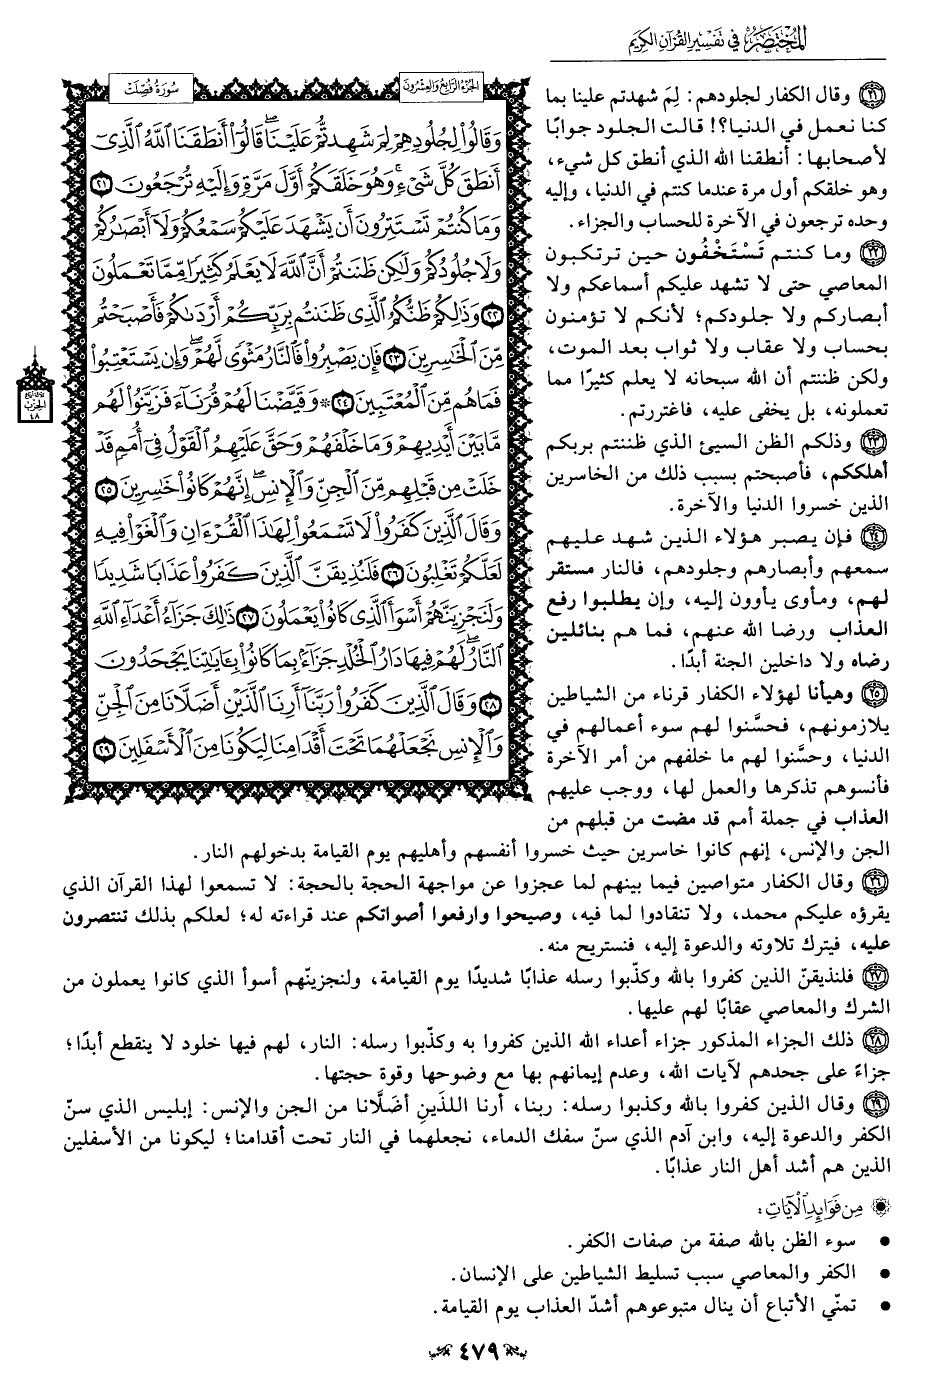 المختصر في تفسير القرآن الكريم
الجزء الرابع والعشرون
سورة فصلت
وَقَالُوا۟ لِجُلُودِهِمْ لِمَ شَهِدتُّمْ عَلَيْنَا ۖ قَالُوٓا۟ أَنطَقَنَا ٱللَّهُ ٱلَّذِىٓ
أَنطَقَ كُلَّ شَىْءٍ وَهُوَ خَلَقَكُمْ أَوَّلَ مَرَّةٍ وَإِلَيْهِ تُرْجَعُونَ ٢١
وَمَا كُنتُمْ تَسْتَتِرُونَ أَن يَشْهَدَ عَلَيْكُمْ سَمْعُكُمْ وَلَآ أَبْصَٰرُكُمْ
وَلَا جُلُودُكُمْ وَلَٰكِن ظَنَنتُمْ أَنَّ ٱللَّهَ لَا يَعْلَمُ كَثِيرًا مِّمَّا تَعْمَلُونَ
٢٢ وَذَٰلِكُمْ ظَنُّكُمُ ٱلَّذِى ظَنَنتُم بِرَبِّكُمْ أَرْدَىٰكُمْ فَأَصْبَحْتُم
مِّنَ ٱلْخَٰسِرِينَ ٢٣ فَإِن يَصْبِرُوا۟ فَٱلنَّارُ مَثْوًى لَّهُمْ ۖ وَإِن يَسْتَعْتِبُوا۟
فَمَا هُم مِّنَ ٱلْمُعْتَبِينَ ٢٤ ۞ وَقَيَّضْنَا لَهُمْ قُرَنَآءَ فَزَيَّنُوا۟ لَهُم
مَّا بَيْنَ أَيْدِيهِمْ وَمَا خَلْفَهُمْ وَحَقَّ عَلَيْهِمُ ٱلْقَوْلُ فِىٓ أُمَمٍ قَدْ
خَلَتْ مِن قَبْلِهِم مِّنَ ٱلْجِنِّ وَٱلْإِنسِ ۖ إِنَّهُمْ كَانُوا۟ خَٰسِرِينَ ٢٥
وَقَالَ ٱلَّذِينَ كَفَرُوا۟ لَا تَسْمَعُوا۟ لِهَٰذَا ٱلْقُرْءَانِ وَٱلْغَوْا۟ فِيهِ
لَعَلَّكُمْ تَغْلِبُونَ ٢٦ فَلَنُذِيقَنَّ ٱلَّذِينَ كَفَرُوا۟ عَذَابًا شَدِيدًا
وَلَنَجْزِيَنَّهُمْ أَسْوَأَ ٱلَّذِى كَانُوا۟ يَعْمَلُونَ ٢٧ ذَٰلِكَ جَزَآءُ أَعْدَآءِ ٱللَّهِ
ٱلنَّارُ ۖ لَهُمْ فِيهَا دَارُ ٱلْخُلْدِ جَزَآءًۢ بِمَا كَانُوا۟ بِـَٔايَٰتِنَا يَجْحَدُونَ
٢٨ وَقَالَ ٱلَّذِينَ كَفَرُوا۟ رَبَّنَآ أَرِنَا ٱلَّذَيْنِ أَضَلَّانَا مِنَ ٱلْجِنِّ
وَٱلْإِنسِ نَجْعَلْهُمَا تَحْتَ أَقْدَامِنَا لِيَكُونَا مِنَ ٱلْأَسْفَلِينَ ٢٩
الحزب
٤٨
٢١ وقال الكفار لجلودهم: لِمَ شهدتم علينا بما
كنا نعمل في الدنيا؟! قالت الجلود جوابًا
لأصحابها: أنطقنا الله الذي أنطق كل شيء،
وهو خلقكم أول مرة عندما كنتم في الدنيا، وإليه
وحده ترجعون في الآخرة للحساب والجزاء.
٢٢ وما كنتم تَسْتَخْفُون حين ترتكبون
المعاصي حتى لا تشهد عليكم أسماعكم ولا
أبصاركم ولا جلودكم؛ لأنكم لا تؤمنون
بحساب ولا عقاب ولا ثواب بعد الموت،
ولكن ظننتم أن الله سبحانه لا يعلم كثيرًا مما
تعملونه، بل يخفى عليه، فاغتررتم.
٢٣ وذلكم الظن السيئ الذي ظننتم بربكم
أهلككم، فأصبحتم بسبب ذلك من الخاسرين
الذين خسروا الدنيا والآخرة.
٢٤ فإن يصبر هؤلاء الذين شهد عليهم
سمعهم وأبصارهم وجلودهم، فالنار مستقر
لهم، ومأوى يأوون إليه، وإن يطلبوا رفع
العذاب ورضا الله عنهم، فما هم بنائلين
رضاه ولا داخلين الجنة أبدًا.
٢٥ وهيأنا لهؤلاء الكفار قرناء من الشياطين
يلازمونهم، فحسَّنوا لهم سوء أعمالهم في
الدنيا، وحسَّنوا لهم ما خلفهم من أمر الآخرة
فأنسوهم تذكرها والعمل لها، ووجب عليهم
العذاب في جملة أمم قد مضت من قبلهم من
الجن والإنس، إنهم كانوا خاسرين حيث خسروا أنفسهم وأهليهم يوم القيامة بدخولهم النار.
٢٦ وقال الكفار متواصين فيما بينهم لما عجزوا عن مواجهة الحجة بالحجة: لا تسمعوا لهذا القرآن الذي
يقرؤه عليكم محمد، ولا تنقادوا لما فيه، وصيحوا وارفعوا أصواتكم عند قراءته له؛ لعلكم بذلك تنتصرون
عليه، فيترك تلاوته والدعوة إليه، فنستريح منه.
٢٧ فلنذيقنّ الذين كفروا بالله وكذّبوا رسله عذابًا شديدًا يوم القيامة، ولنجزينّهم أسوأ الذي كانوا يعملون من
الشرك والمعاصي عقابًا لهم عليها.
٢٨ ذلك الجزاء المذكور جزاء أعداء الله الذين كفروا به وكذّبوا رسله: النار، لهم فيها خلود لا ينقطع أبدًا؛
جزاءً على جحدهم لآيات الله، وعدم إيمانهم بها مع وضوحها وقوة حجتها.
٢٩ وقال الذين كفروا بالله وكذبوا رسله: ربنا، أرنا اللذَينِ أضَلَّانا من الجن والإنس: إبليس الذي سنّ
الكفر والدعوة إليه، وابن آدم الذي سنّ سفك الدماء، نجعلهما في النار تحت أقدامنا؛ ليكونا من الأسفلين
الذين هم أشد أهل النار عذابًا.
من فوائد الآيات:
• سوء الظن بالله صفة من صفات الكفر.
• الكفر والمعاصي سبب تسليط الشياطين على الإنسان.
• تمنّي الأتباع أن ينال متبوعوهم أشدّ العذاب يوم القيامة.
٤٧٩